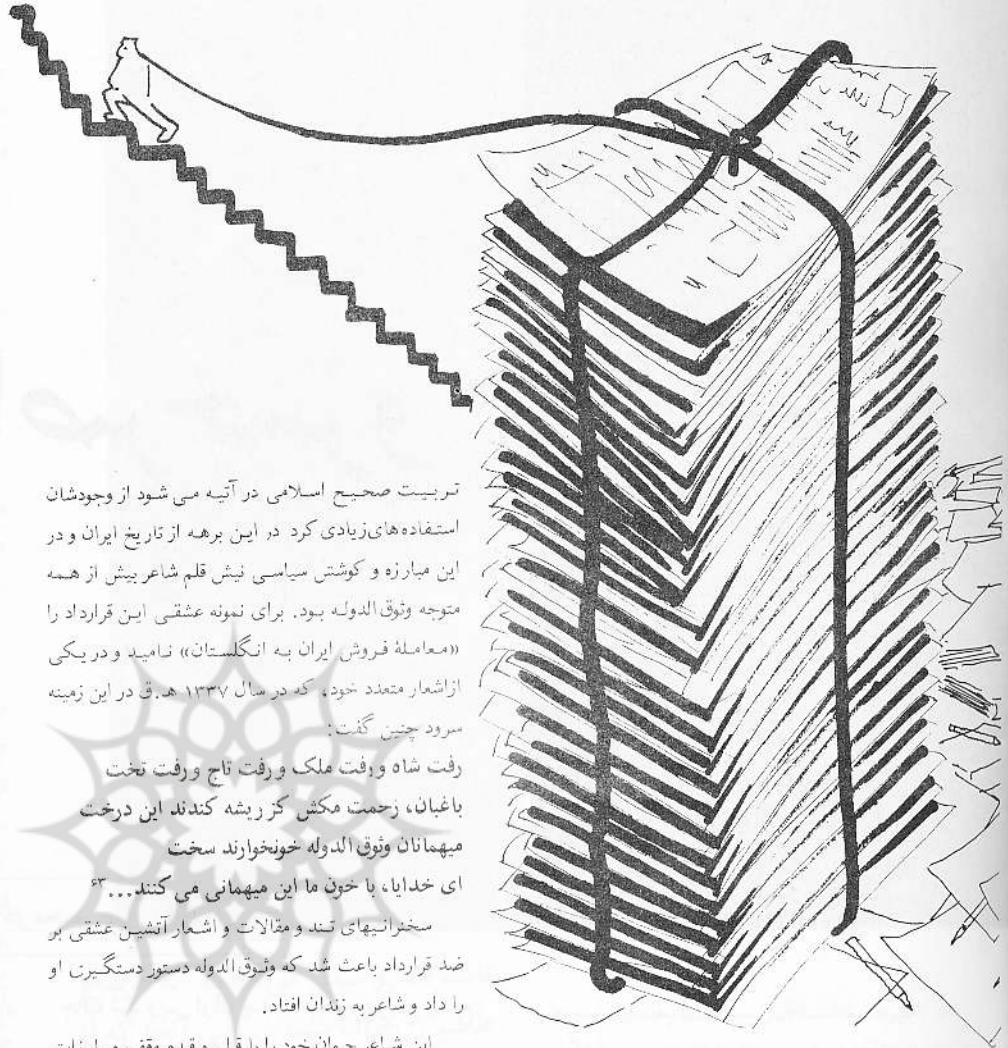 تربیت صحیح اسلامی در آتیه می شود از وجودشان
استفاده های زیادی کرد در این برهه از تاریخ ایران و در
این مبارزه و کوشش سیاسی نیش قلم شاعر بیش از همه
متوجه وثوق الدوله بود. برای نمونه عشقی این قرارداد را
«معاملهٔ فروش ایران به انگلستان» نامید و در یکی
ازاشعار متعدد خود، که در سال ۱۳۳۷ هـ.ق در این زمینه
سرود چنین گفت:
رفت شاه و رفت ملک و رفت تاج و رفت تخت
باغبان، زحمت مکش کز ریشه کندند این درخت
میهمانان وثوق الدوله خونخوارند سخت
ای خدایا، با خون ما این میهمانی می کنند...۶۳
سخنرانیهای تند و مقالات و اشعار آتشین عشقی بر
ضد قرارداد باعث شد که وثوق الدوله دستور دستگیری او
را داد و شاعر به زندان افتاد.
این شاعر جوان خود را با قلم و قدم وقف